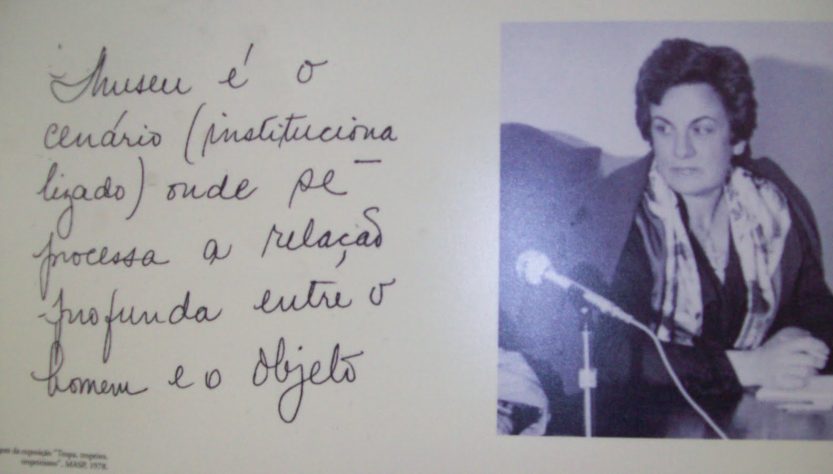 Museu é o
cenário (instituciona
lizado) onde se
processa a relação
profunda entre o
homem e o objeto
da exposição "Tropa, tropeiro,
tropeirismo", MASP, 1978.